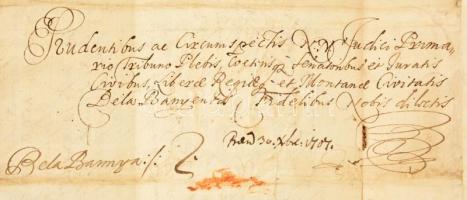 Prudentibus ac Circumspectis N.N. Judici Prima-
rio Tribuno Plebis, Coetuiq Senatoribus et Juratis
Civibus, Liberæ Regiæq et Montanæ Civitatis
Bela Banyensis Fidelibus Nobis dilectis
30. Xbr. 1707.
Bela Bannya:/: